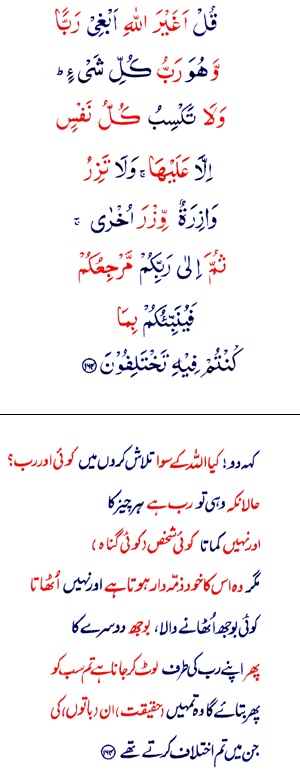 قُلْ اَغَيْرَ اللّٰهِ اَبْغِیْ رَبًّا
وَّهُوَ رَبُّ كُلِّ شَیْءٍ ؕ
وَلَا تَكْسِبُ كُلُّ نَفْسٍ
اِلَّا عَلَيْهَا ۚ وَلَا تَزِرُ
وَازِرَةٌ وِّزْرَ اُخْرٰی ۚ
ثُمَّ اِلٰی رَبِّكُمْ مَّرْجِعُكُمْ
فَيُنَبِّئُكُمْ بِمَا
كُنْتُمْ فِيْهِ تَخْتَلِفُوْنَ ﴿۱۶۴﴾
کہہ دو! کیا اللہ کے سوا تلاش کروں میں کوئی اور رب؟
حالانکہ وہی تو رب ہے ہر چیز کا
اور نہیں کماتا کوئی شخص (کوئی گناہ)
مگر وہ اس کا خود ذمّہ دار ہوتا ہے اور نہیں اُٹھاتا
کوئی بوجھ اُٹھانے والا، بوجھ دوسرے کا
پھر اپنے رب کی طرف لوٹ کر جانا ہے تم سب کو
پھر بتائے گا وہ تمہیں (حقیقت) ان (باتوں) کی
جن میں تم اختلاف کرتے تھے ﴿۱۶۴﴾